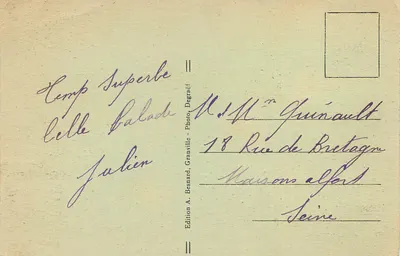 Temp superbe
belle balade
Julien
Edition A. Besnard, Granville - Photo, Degraëf
M et Mme Guénault
18 Rue de Bretagne
Maisons alfort
Seine